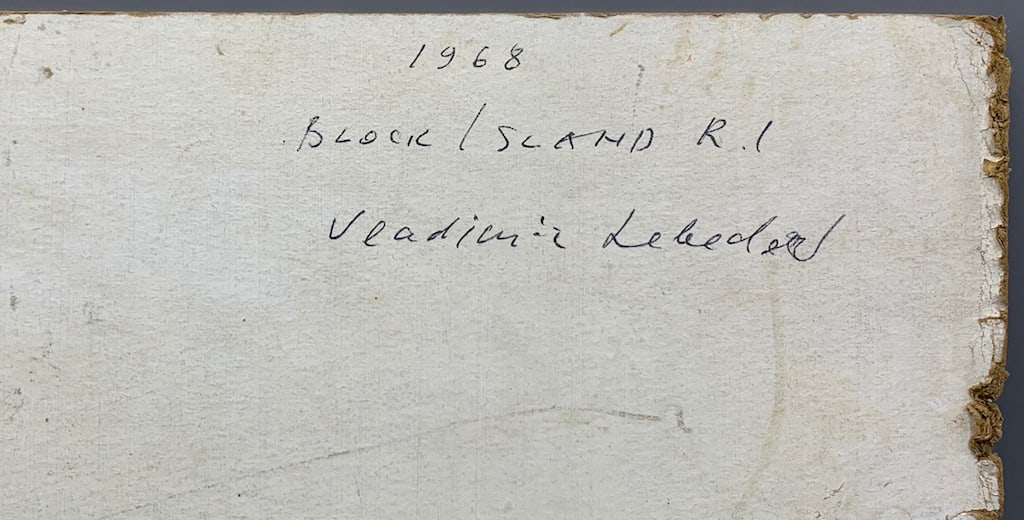 1968
BLOCK ISLAND R.I
Vladimir Lebedev